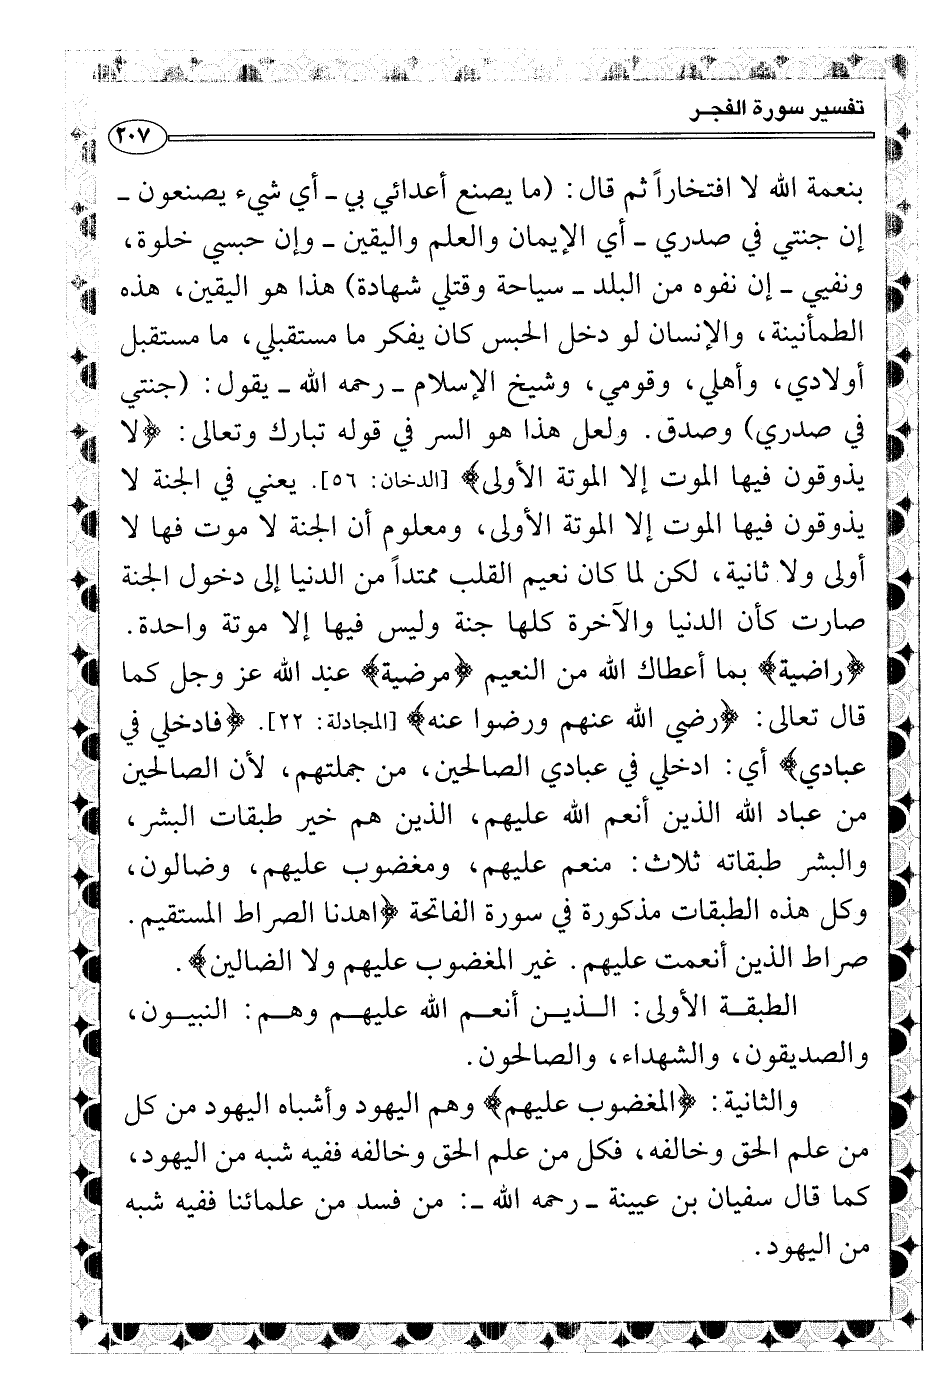 تفسير سورة الفجـر
٢٠٧
بنعمة الله لا افتخاراً ثم قال: (ما يصنع أعدائي بي ـ أي شيء يصنعون ـ
إن جنتي في صدري ـ أي الإيمان والعلم واليقين ـ وإن حبسي خلوة،
ونفيي ـ إن نفوه من البلد ـ سياحة وقتلي شهادة) هذا هو اليقين، هذه
الطمأنينة، والإنسان لو دخل الحبس كان يفكر ما مستقبلي، ما مستقبل
أولادي، وأهلي، وقومي، وشيخ الإسلام ـ رحمه الله ـ يقول: (جنتي
في صدري) وصدق. ولعل هذا هو السر في قوله تبارك وتعالى: ﴿لا
يذوقون فيها الموت إلا الموتة الأولى﴾ [الدخان: ٥٦]. يعني في الجنة لا
يذوقون فيها الموت إلا الموتة الأولى، ومعلوم أن الجنة لا موت فها لا
أولى ولا ثانية، لكن لما كان نعيم القلب ممتداً من الدنيا إلى دخول الجنة
صارت كأن الدنيا والآخرة كلها جنة وليس فيها إلا موتة واحدة.
﴿راضية﴾ بما أعطاك الله من النعيم ﴿مرضية﴾ عند الله عز وجل كما
قال تعالى: ﴿رضي الله عنهم ورضوا عنه﴾ [المجادلة: ٢٢]. ﴿فادخلي في
عبادي﴾ أي: ادخلي في عبادي الصالحين، من جملتهم، لأن الصالحين
من عباد الله الذين أنعم الله عليهم، الذين هم خير طبقات البشر،
والبشر طبقاته ثلاث: منعم عليهم، ومغضوب عليهم، وضالون،
وكل هذه الطبقات مذكورة في سورة الفاتحة ﴿اهدنا الصراط المستقيم.
صراط الذين أنعمت عليهم. غير المغضوب عليهم ولا الضالين﴾.
الطبقـة الأولى: الـذيـن أنعـم الله عليهـم وهـم: النبيـون،
والصديقون، والشهداء، والصالحون.
والثانية: ﴿المغضوب عليهم﴾ وهم اليهود وأشباه اليهود من كل
من علم الحق وخالفه، فكل من علم الحق وخالفه ففيه شبه من اليهود،
كما قال سفيان بن عيينة ـ رحمه الله ـ: من فسد من علمائنا ففيه شبه
من اليهود.